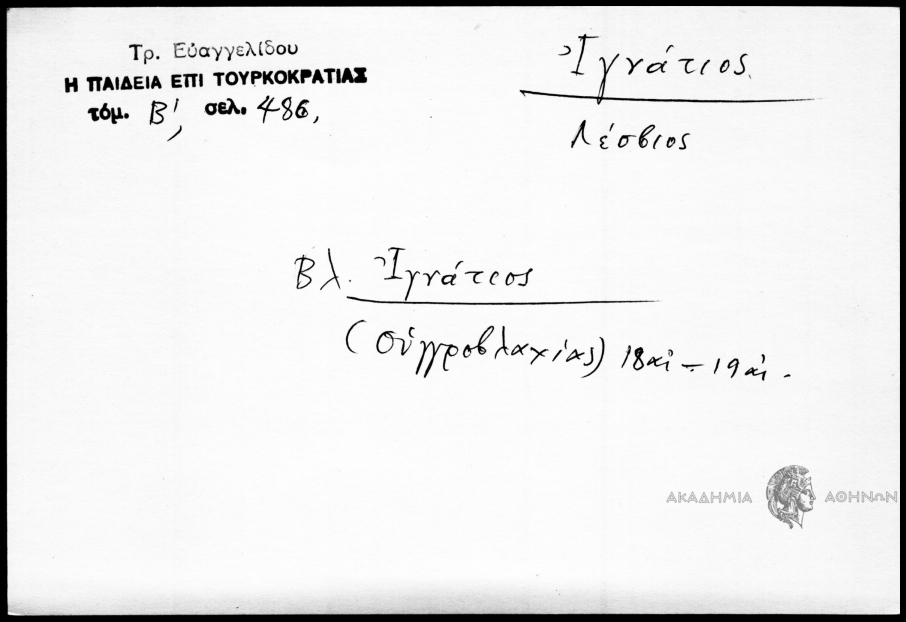 Τρ. Εὐαγγελίδου
Η ΠΑΙΔΕΙΑ ΕΠΙ ΤΟΥΡΚΟΚΡΑΤΙΑΣ
τόμ. Β', σελ. 486,
Ἰγνάτιος
Λέσβιος
Βλ. Ἰγνάτιος
(Οὑγγροβλαχίας) 18αἰ - 19αἰ.
ΑΚΑΔΗΜΙΑ ΑΘΗΝΩΝ